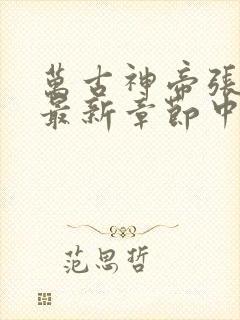 萬古神帝張
最新章節中
范思哲